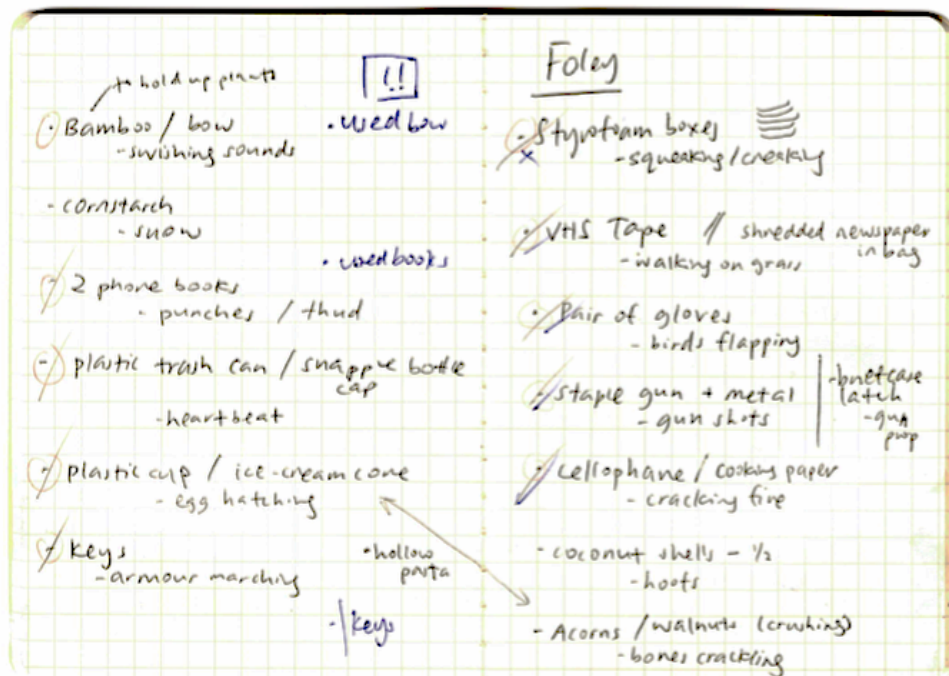 to hold up plants
!!
· Bamboo / bow
- swishing sounds
· used bow
- cornstarch
- snow
· used books
- 2 phone books
- punches / thud
- plastic trash can / snapple bottle
cap
- heartbeat
- plastic cup / ice-cream cone
- egg hatching
- keys
- armour marching
· hollow
pasta
- keys
Foley
- Styrofoam boxes
- squeaking / creaking
· VHS Tape // shredded newspaper
in bag
- walking on grass
· Pair of gloves
- birds flapping
- staple gun + metal
- gun shots
- briefcase
latch
- gun
prop
· cellophane / cooking paper
- cracking fire
- coconut shells - 1/2
- hoots
- Acorns / walnuts (crushing)
- bones crackling